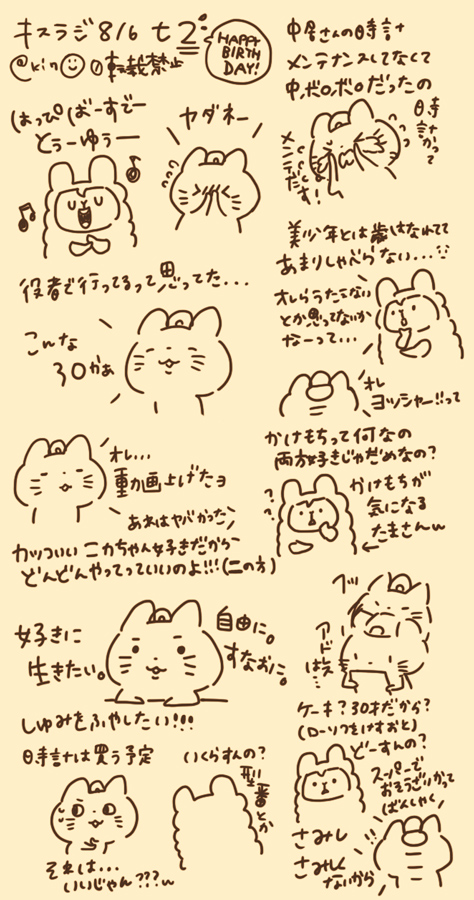 キスラジ 8/6 七2
HAPPY
BIRTH
DAY!
@kin 転載禁止
はっぴばーすでー
とぅーゆぅー
ヤダネー
役者で行ってるって思ってた...
こんな
30かぁ
オレ...
動画上げたョ
あれはヤバかった
カッついい ニカちゃん好きだから
どんどんやってっていいのよ!!!(二の方)
好きに
生きたい。
自由に。
すなおに。
しゅみをふやしたい!!!
時計は買う予定
いくらすんの?
型番とか
それは...
いいじゃん???w
中居さんの時計
メンテナンスしてなくて
中ボロボロだったの
時計かって
メンテだす!
美少年とは歳はなれてて
あまりしゃべらない...
オレらうたこない
とか思ってないか
なーって...
オレ
ヨッシャー!!って
かけもちって何なの
両方好きじゃだめなの?
かけもちが
気になる
たまさんw
??
グッ
アドは救...
ケーキ?30才だから?
(ローソクをけすおと)
どーすんの?
スーパーで
おそうざいかって
ばんしゃく
さみし
さみしく
ないから